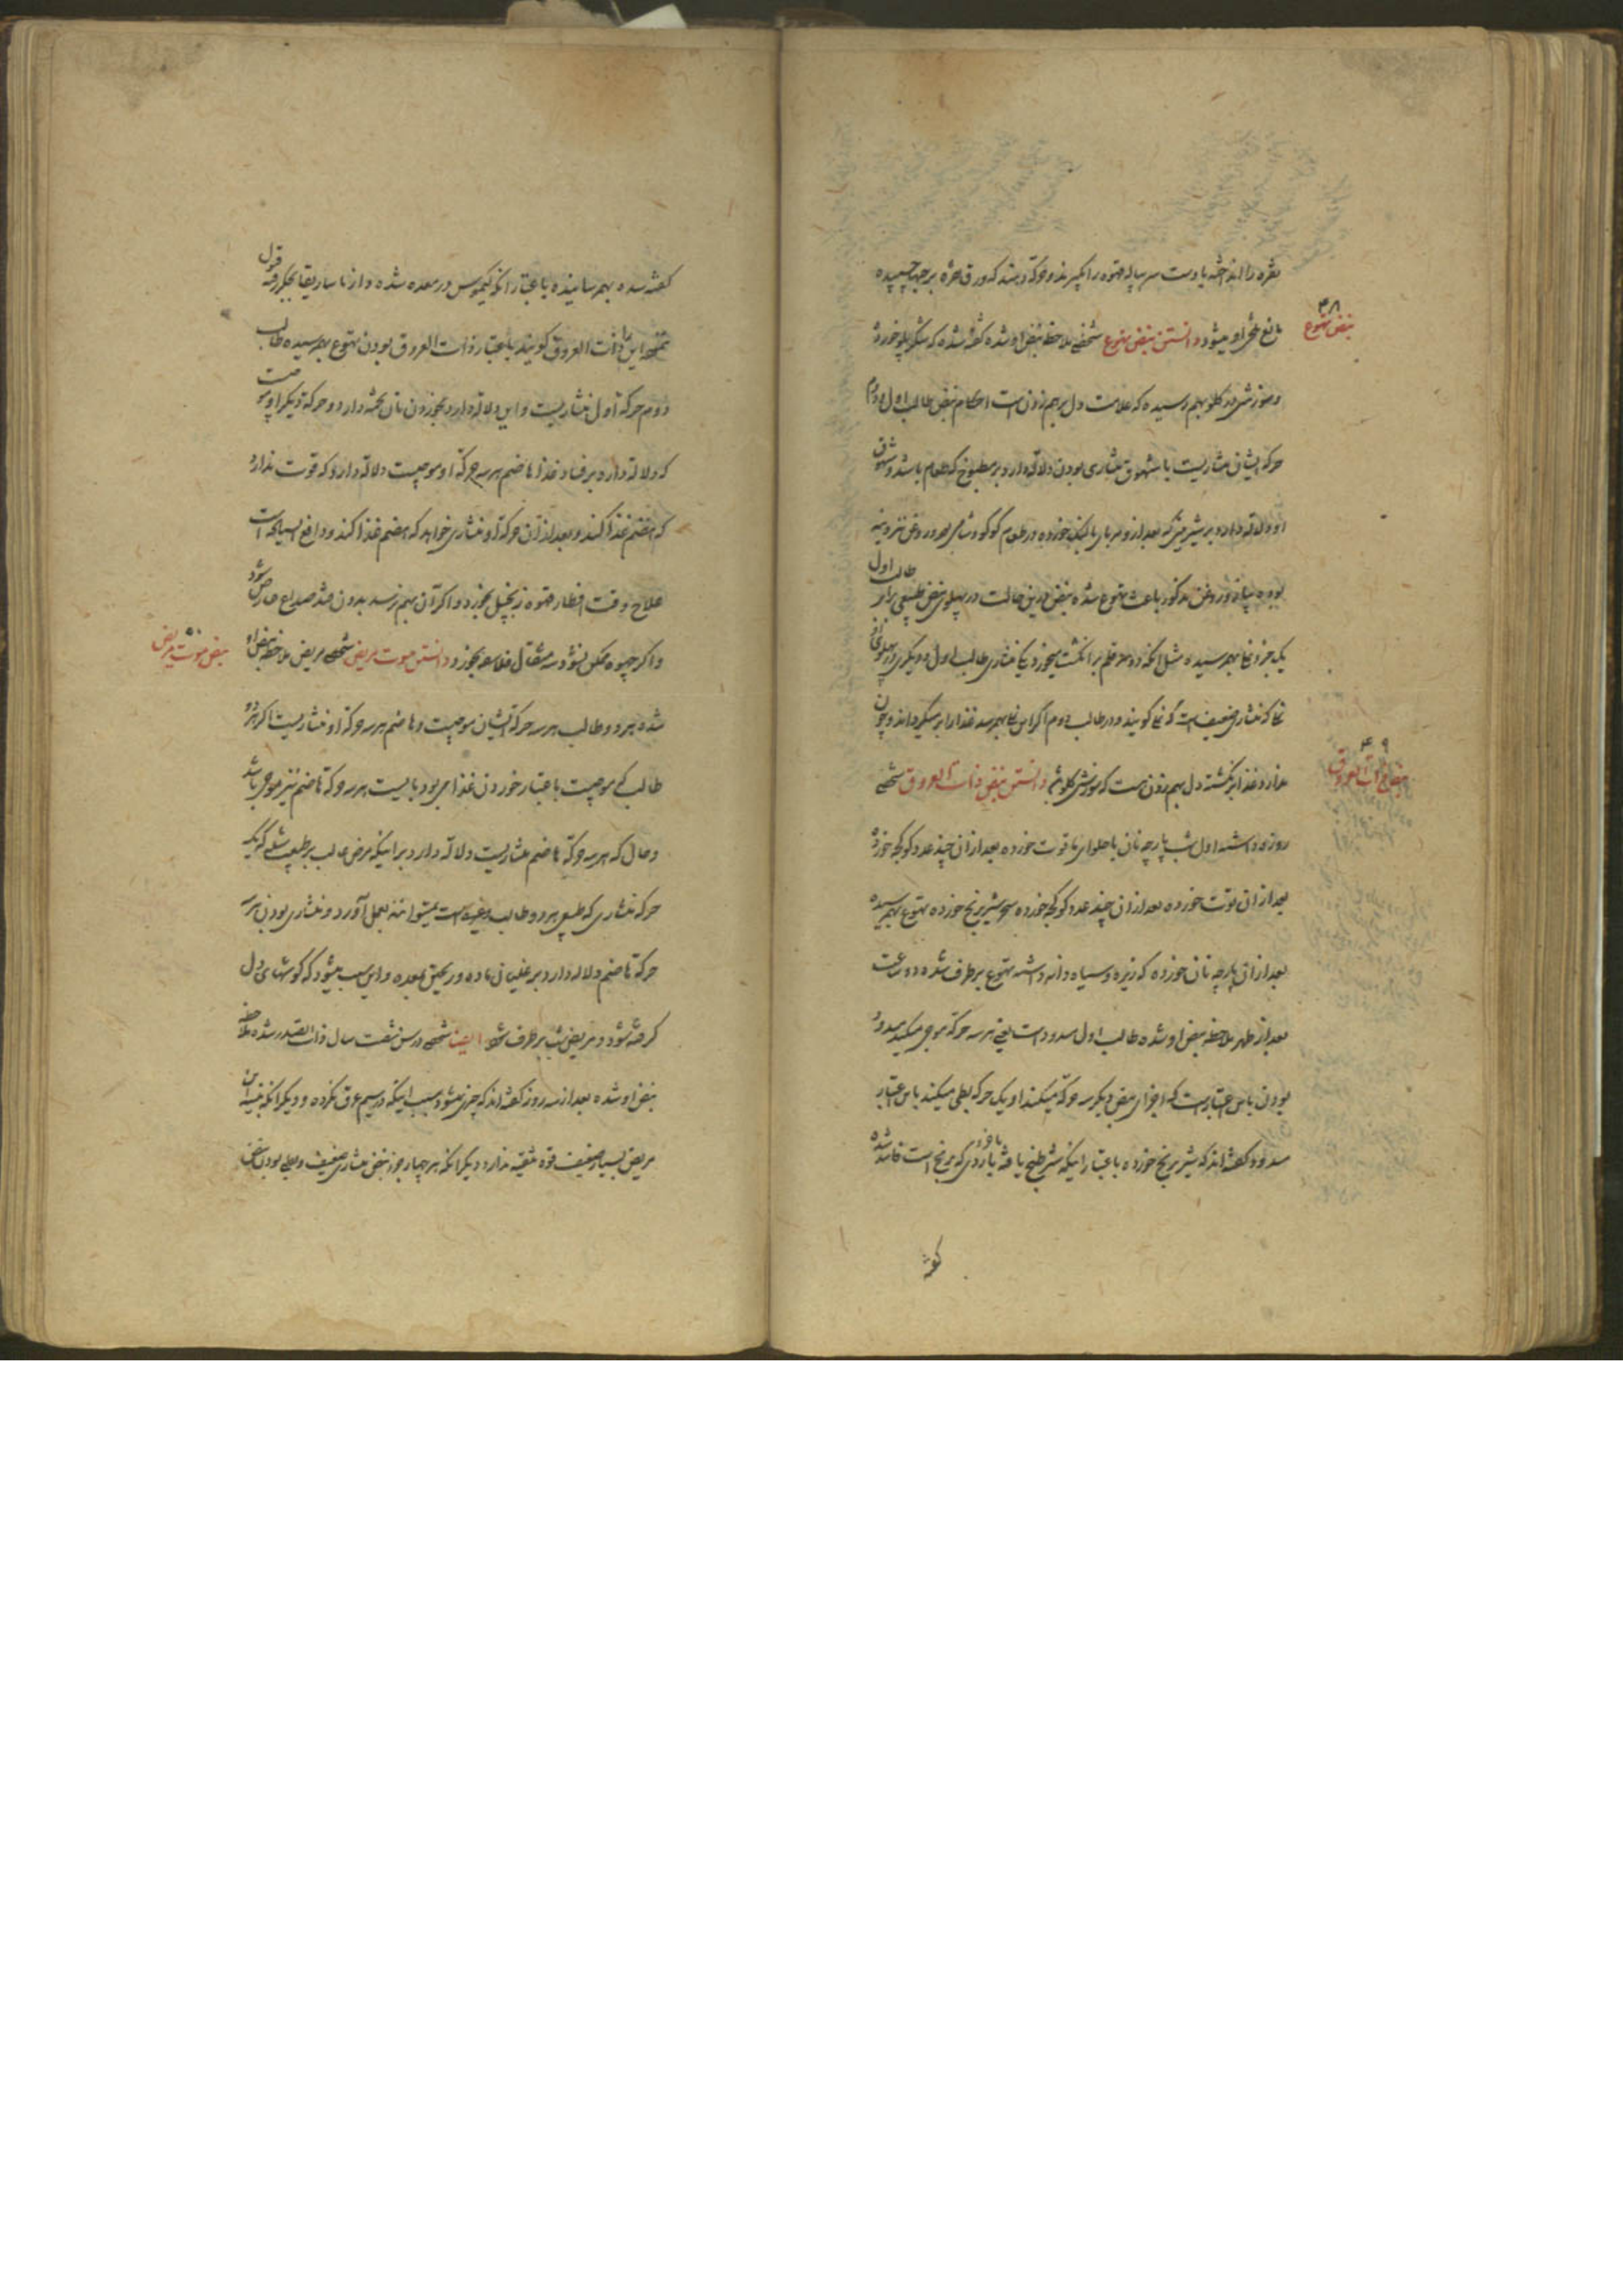 نقره را انداخته با دست سر پیاله قهوه را بگیرند و حرکة دهند که ورق نقره بر جید چسپیده
نبض تهوع
۴۸
مانع تلخی او میشود دانستن نبض تهوع شخصی ملاحظه نبض او شده گفته شده که شکر پلو خورده
و سوزش در گلو بهم رسیده که علامت دل برهم زدن است احکام نبض طالب اول و دوم
حرکة ایشان منشاریست یا شهوق منشاری بودن دلالة دارد بر مطبوخ که طعام باشد و شهوق
او دلالة دارد بر شیرینی که بعد از و مربای بالنک خورده و در طعام کوکو و شامی بوده و روغن نیز
بوده پیاز و روغن مذکور باعث تهوع شده نبض درین حالت در پهلوی نبض طبیعی برابر طالب اول
یک جزو نما بهم رسیده مثل آنکه دو سر قلم بر انگشت میخورد یکی منشاری طالب اول و دیگری در پهلوی او
نما که منشاری ضعیف است که نما گویند و در طالب دوم اگر این نما بهم رسد غذا را بر میگرداند و چون
ندارد غذا برنگشته دل بهم زدن است که سوزش گلو دانستن نبض ذات العروق شخصی
نبض ذات العروق
۴۹
روزه داشته اول شب پارچه نان با حلوای یاقوت خورده بعد از ان چند عدد کوکچه خورده
بعد از ان توت خورده بعد از ان چند عدد کوکچه خورده سحر شیر برنج خورده تهوع بهم رسیده
بعد از ان پارچه نان خورده که زیره و سیاه دانه داشته تهوع بر طرف شده دو ساعت
بعد از ظهر ملاحظه نبض او شده طالب اول مسدود است یعنی هر سه حرکة موجی میکند مسدود
بودن باین اعتبار است که اجزای نبض دیگر سه حرکة میکنند او یک حرکة بطی میکند باین اعتبار
مسدود گفته اند که شیر برنج خورده باعتبار اینکه شیر طبخ یافته با آردی که برنج است فاسد شده
گفته شده بهم رسانیده باعتبار آنکه کیموس در معده شده و از ماساریقا بجگر رفته قول
نتیجه این را ذات العروق گویند باعتبار ذات العروق بودن تهوع بهم رسیده طالب
دوم حرکة اول منشاریست و این دلالة دارد بخوردن نان پخته دارد و حرکة دیگر او موجیست
که دلالة دارد بر فساد غذا هاضم هر سه حرکة او موجیست دلالة دارد که قوت ندارد
که هضم غذا کند و بعد از ان حرکة او منشاری خواهد که هضم غذا کند و دافع
علاج وقت افطار قهوه زنجبیل بخورد و اگر آن بهم نرسد بدون قند صداع عارض شود
و اگر قهوه ممکن نشود سه مثقال فلاسفه بخورد دانستن موت مریض شخصی مریض ملاحظه نبض او
نبض موت مریض
۵۰
شده هر دو طالب هر سه حرکة ایشان موجیست و هاضم هر سه حرکة او منشاریست اگر هر دو
طالب که موجیست باعتبار خوردن غذا می بود بایست هر سه حرکة هاضم نیز موجی باشد
و حال که هر سه حرکة هاضم منشاریست دلالة دارد بر اینکه مرض غالب بر طبیعت
حرکة منشاری که طبیعی هر دو طالب است نمیتوانند بعمل آورد و منشاری بودن هر سه
حرکة هاضم دلالة دارد بر غلیان ماده و ریختن بمعده و این سبب میشود که گوشهای دل
گرفته شود و مریض بر طرف شود ایضا شخصی در سن شصت سال ذات الصدر شده ملاحظه
نبض او شده بعد از سه روز گفته اند که چیزی نمیشود بسبب اینکه در سیم عرق نکرده و دیگر آنکه بنیه این
مریض بسیار ضعیف قوة تنقیه ندارد دیگر آنکه هر چهار جزو نبض منشاری ضعیف و بطی بودن نبض
گفته